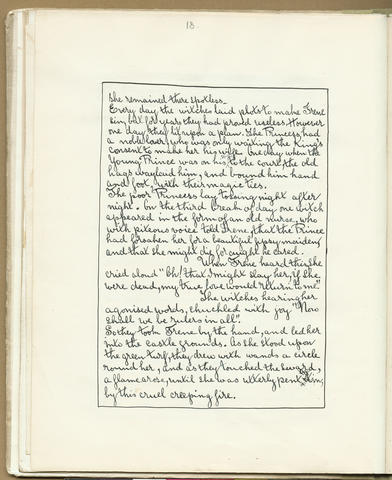 18
she remained there spotless.
Every day the witches laid plots to make Irene
sin, but for years they had proved useless. However
one day they lit upon a plan. The Princess, had
a noble lover, who was only waiting the King's
consent to make her his wife. One day when the
Young Prince was on his way to the court the old
hags waylaid him, and bound him hand
and foot, with their magic ties.
The poor Princess lay tossing night after
night. On the third break of day, one witch
appeared in the form of an old nurse, who
with piteous voice told Irene, that the Prince
had forsaken her for a beautiful gypsy maiden,
and that she might die for aught he cared.
When Irene heard this she
cried aloud "Oh! that I might slay her, if she
were dead, my true love would return to me"
The witches hearing her
agonised words, chuckled with joy "Now
shall we be rulers in all".
So they took Irene by the hand, and led her
into the castle grounds. As she stood upon
the green turf, they drew with wands a circle
round her, and as they touched the sward,
a flame arose, until she was utterly pent in,
by this cruel creeping fire.